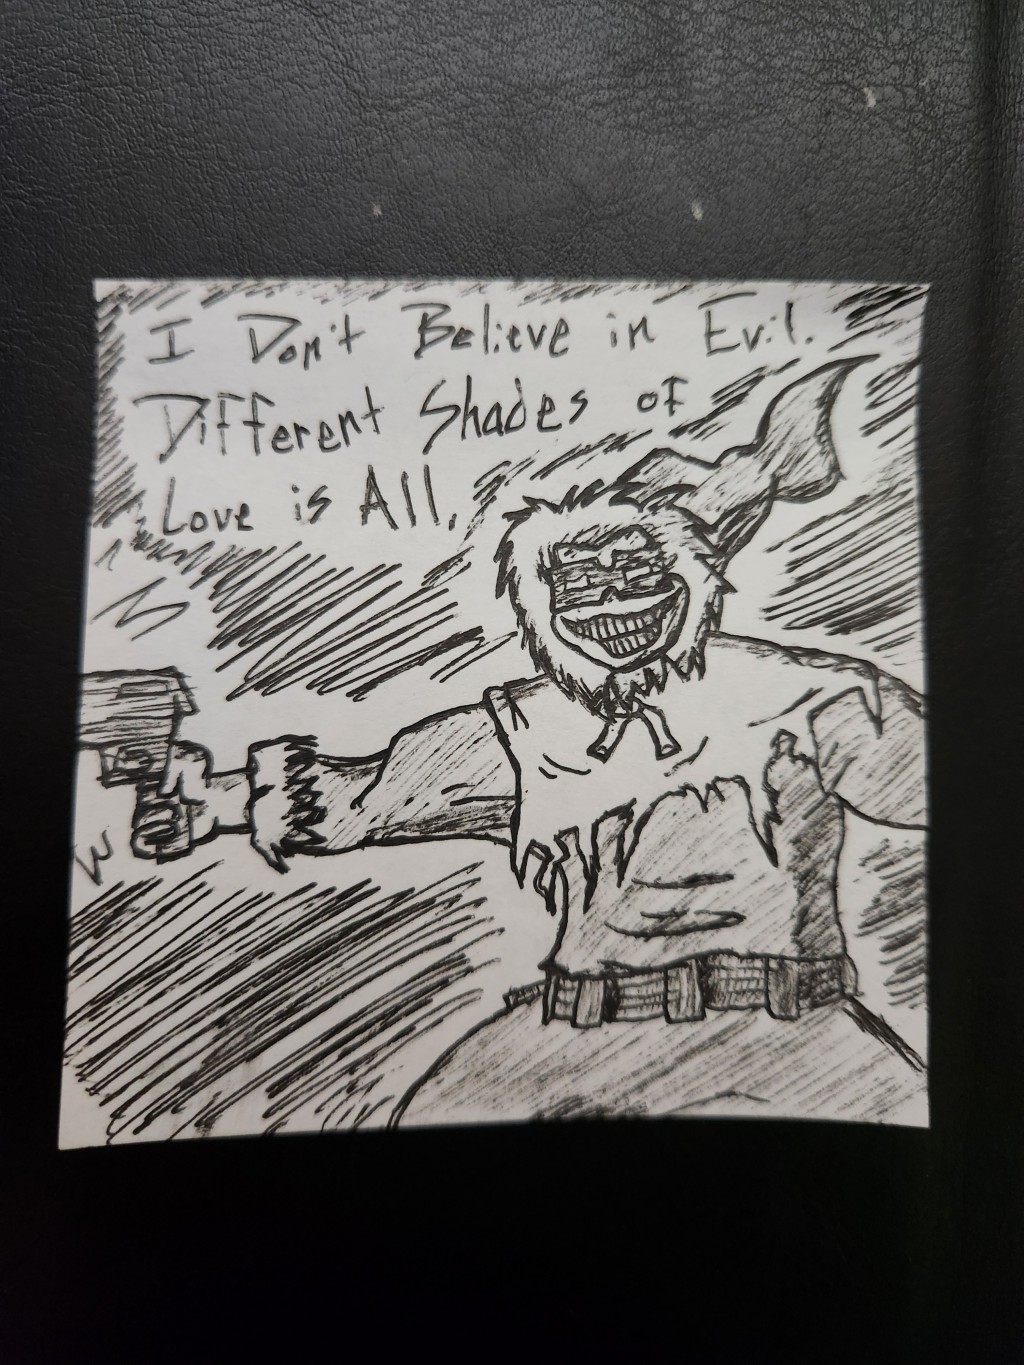 I Don't Believe in Evil.
Different Shades of
Love is All.